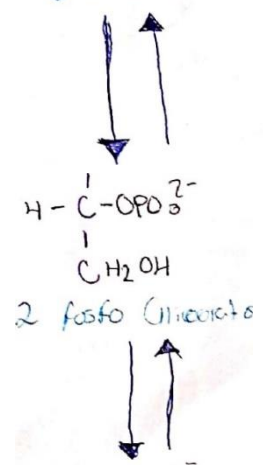 H - C - OPO₃²⁻
CH₂OH
2 fosfo Glicerato